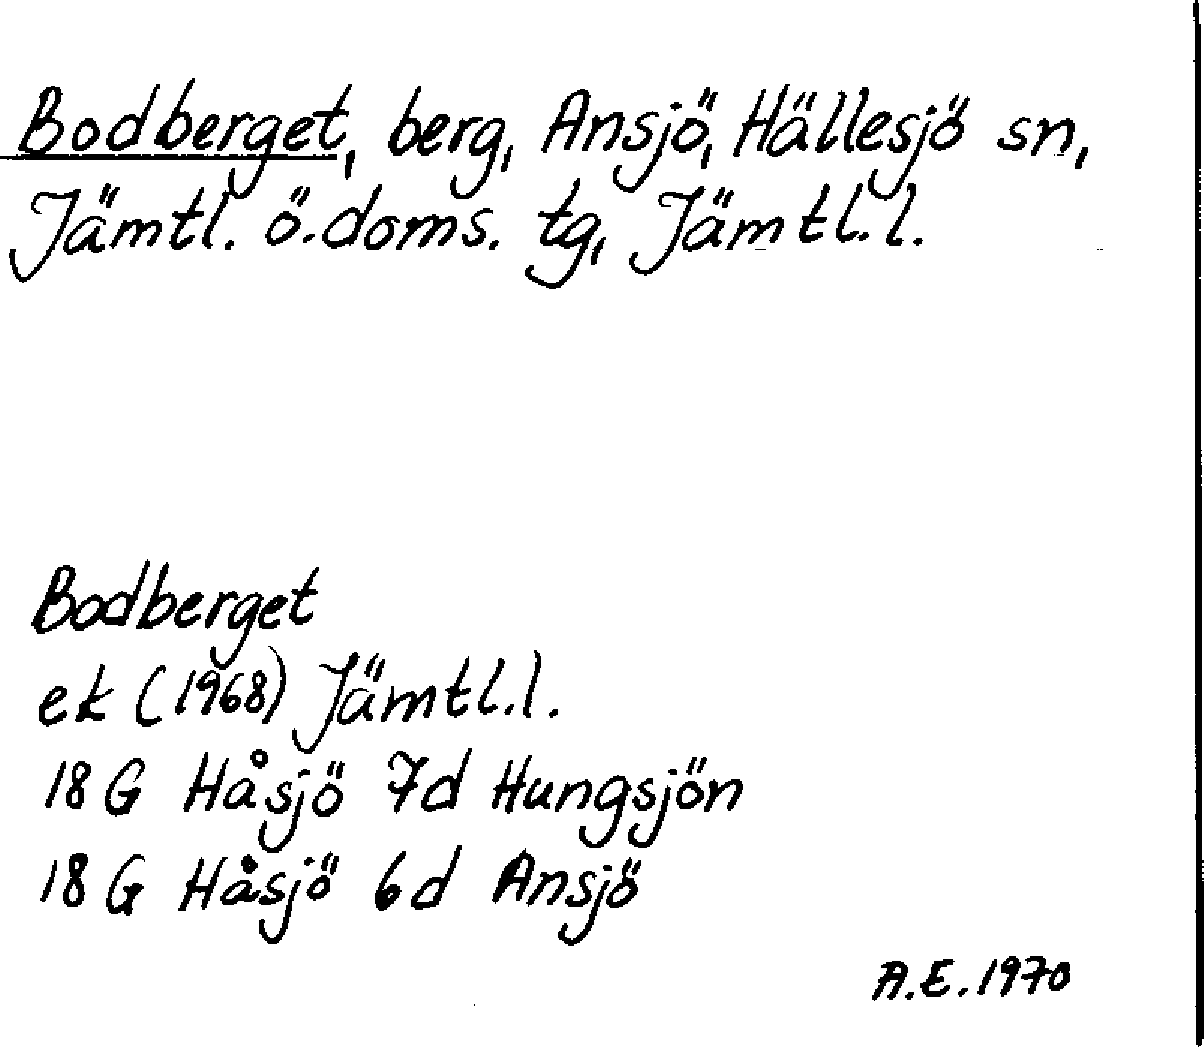 Bodberget, berg, Ansjö, Hällesjö sn,
Jämtl. ö. doms. tg, Jämtl. l.
Bodberget
ek (1968) Jämtl. l.
18 G Håsjö 7d Hungsjön
18 G Håsjö 6d Ansjö
A.E. 1970